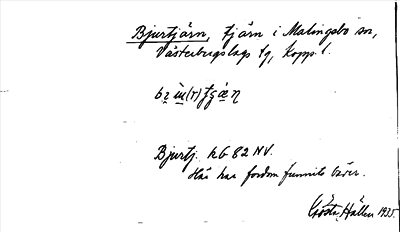 Bjurtjärn, tjärn i Malingsbo sn,
Västerbergslags tg, Kopp. l.
Bjurtj. kb 82 NV.
Här har fordom funnits bäver.
Gösta Hållen 1935.